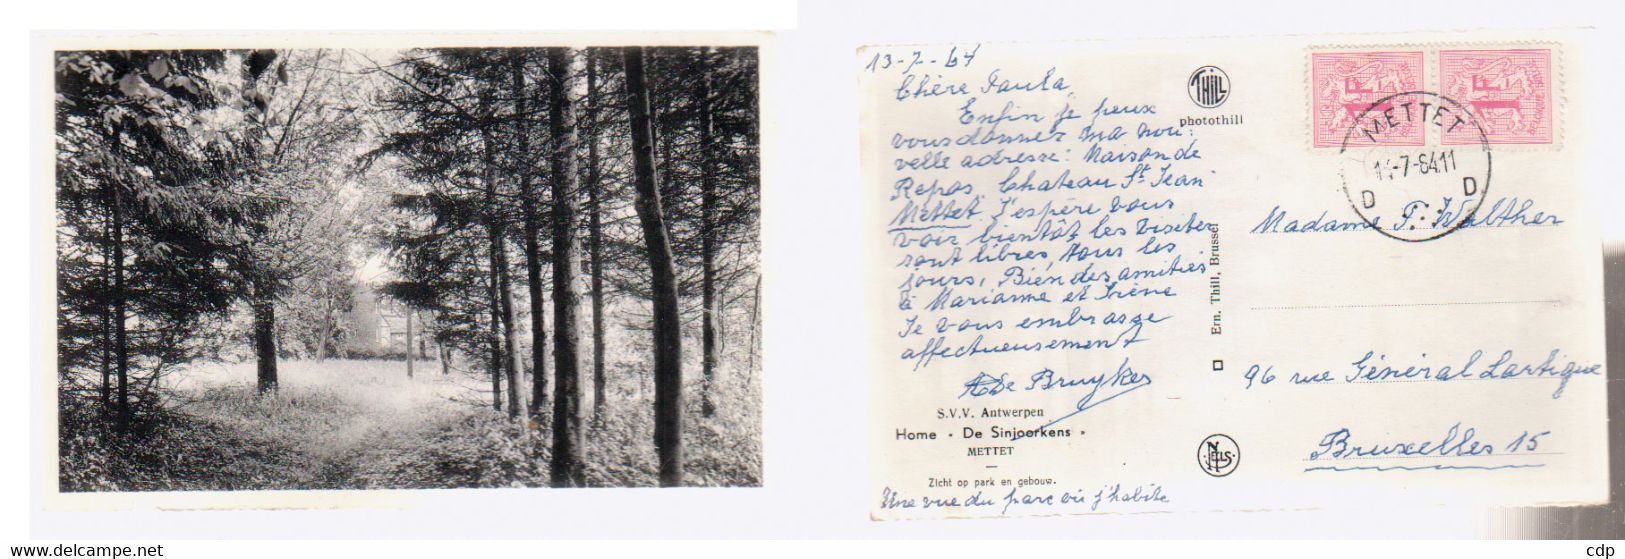 13-7-64
Chère Paula,
Enfin je peux
vous donner ma nou:
velle adresse: Maison de
Repos, Chateau St Jean
Mettet J'espère vous
voir bientôt les visites
sont libres, tous les
jours, Bien des amitiés
à Marianne et Irène
Je vous embrasse
affectueusement
De Bruyker
S.V.V. Antwerpen
Home « De Sinjoorkens »
METTET
Zicht op park en gebouw.
Une vue du parc où j'habite
THILL
photothill
Ern. Thill, Brussel
NELS
1F
1F
BELGIE-BELGIQUE
METTET
14-7-64 11
D D
Madame P. Walther
96 rue Général Lartigue
Bruxelles 15
www.delcampe.net
cdp